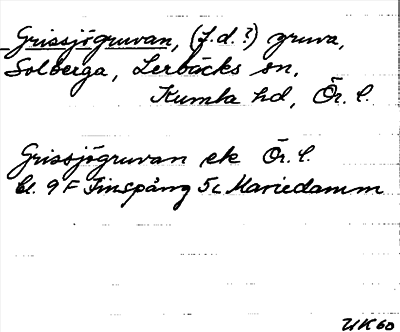 Grissjögruvan, (f.d.?) gruva,
Solberga, Lerbäcks sn,
Kumla hd, Ör. l.
Grissjögruvan ek Ör. l.
bl. 9F Finspång 5c Mariedamm
UK60